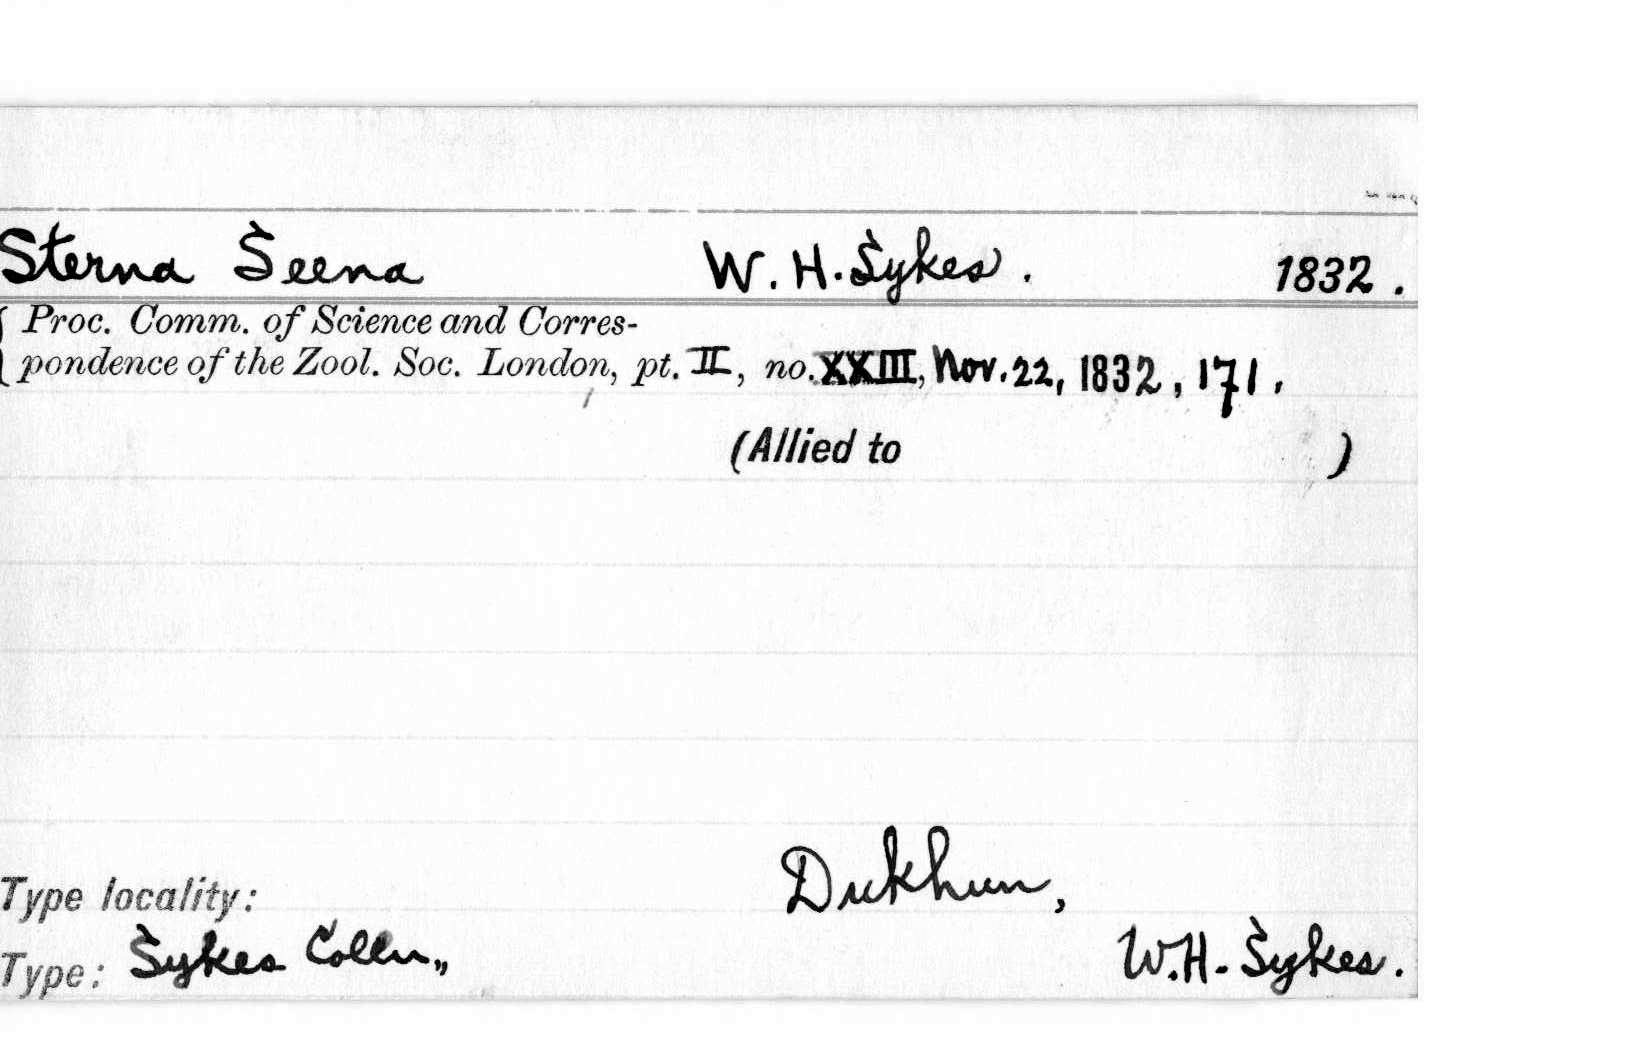 Sterna Seena W. H. Sykes. 1832.
Proc. Comm. of Science and Corres-
pondence of the Zool. Soc. London, pt. II, no. XXIII, Nov. 22, 1832, 171.
(Allied to )
Type locality: Dukhun,
Type: Sykes Colln,, W.H. Sykes.